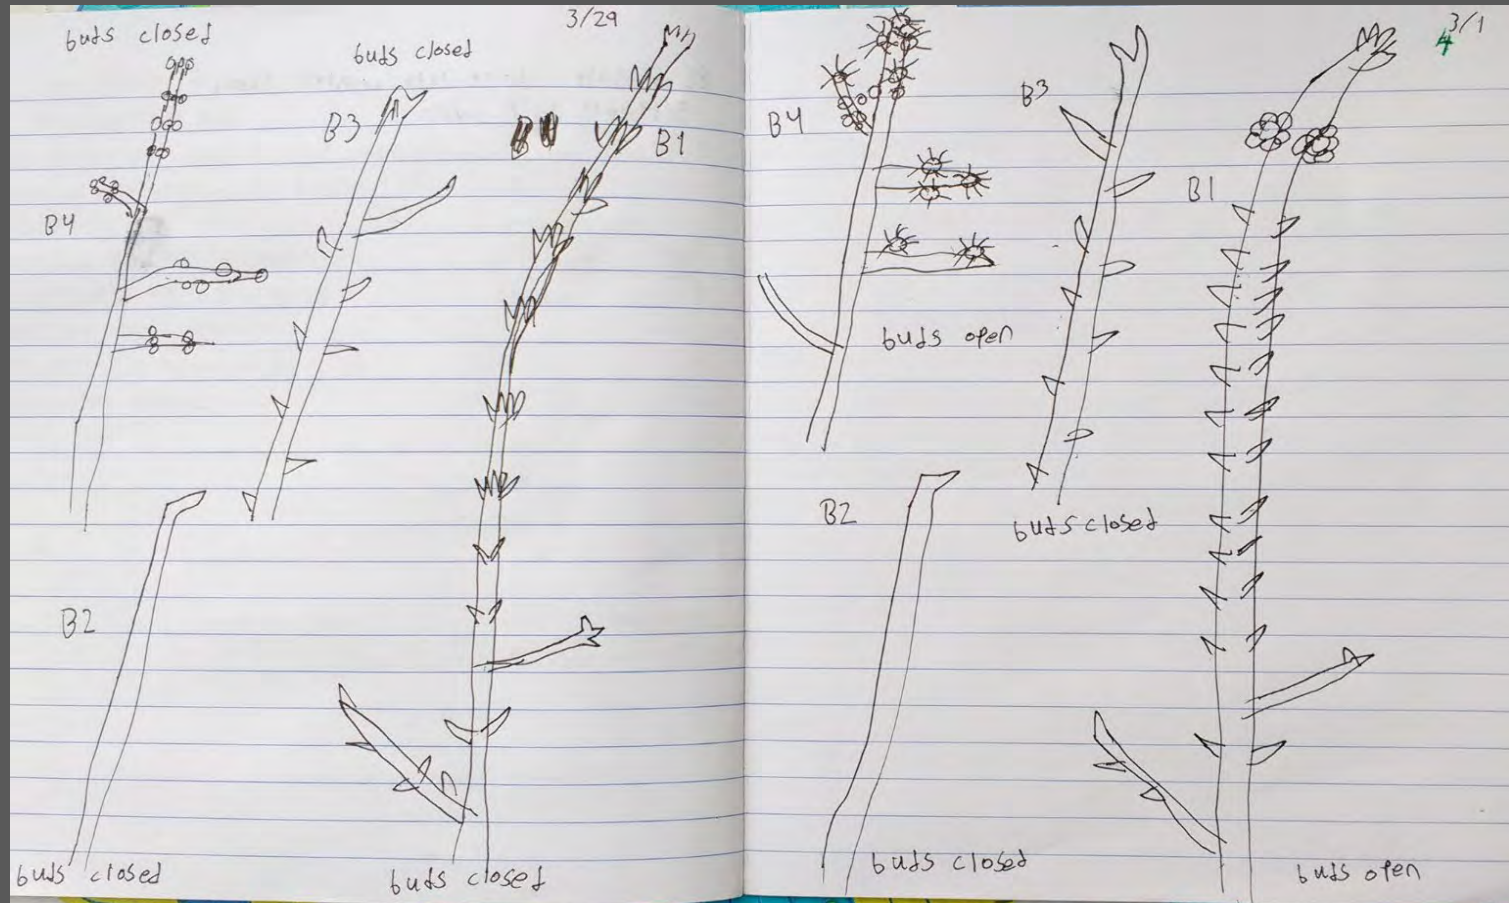 3/29
buds closed
buds closed
B3
B1
B4
B2
buds closed
buds closed
4 3/1
B4
B3
B1
buds open
B2
buds closed
buds closed
buds open